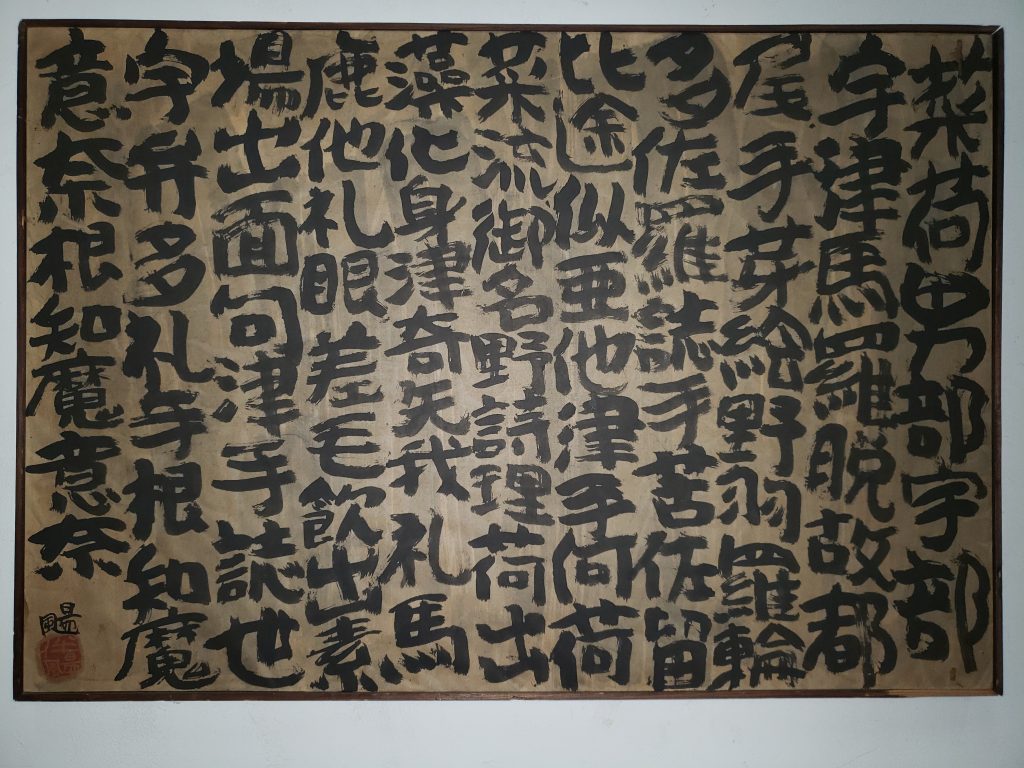 菜荷男部宇部
宇津馬羅脱故都
屋手芽絵野羽羅輪
多佐羅誌手苦佐留
比途似亜他津手何荷
菜流御名野詩理荷出
藻化身津奇矢我礼馬
鹿他礼眼差毛飲出素
場出面句津手読也
宇弁多礼手根知魔
意奈根知魔意奈